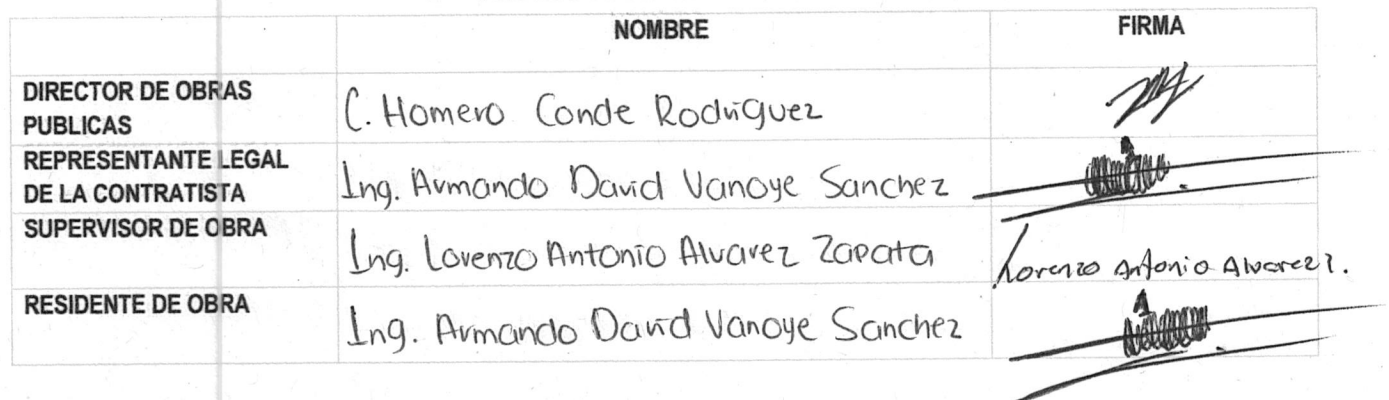 NOMBRE FIRMA
DIRECTOR DE OBRAS
PUBLICAS
C. Homero Conde Rodriguez
REPRESENTANTE LEGAL
DE LA CONTRATISTA
Ing. Armando David Vanoye Sanchez
SUPERVISOR DE OBRA
Ing. Lorenzo Antonio Alvarez Zapata
Lorenzo Antonio Alvarez Z.
RESIDENTE DE OBRA
Ing. Armando David Vanoye Sanchez